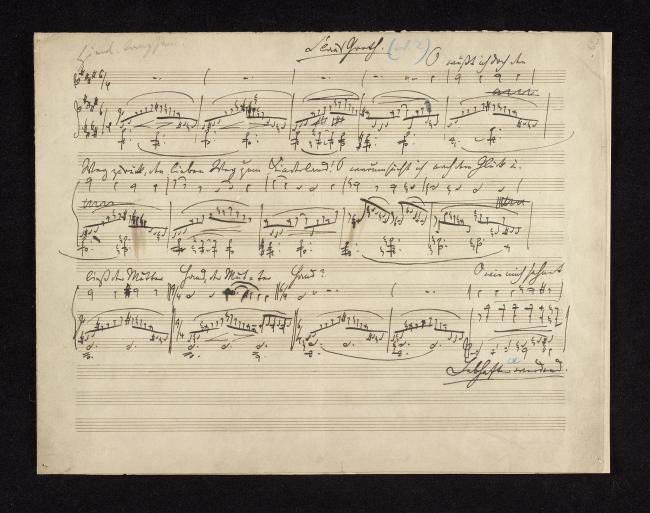 langsam.
Klaus Groth.
O wüßt ich doch den
Weg zurück, den lieben Weg zum Kinderland! O warum sucht ich nach dem Glück u.
ließ der Mutter Hand, der Mutter Hand? O wie mich sehnet
werdend.